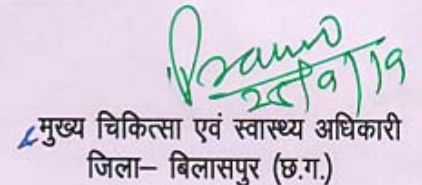 मुख्य चिकित्सा एवं स्वास्थ्य अधिकारी
जिला– बिलासपुर (छ.ग.)